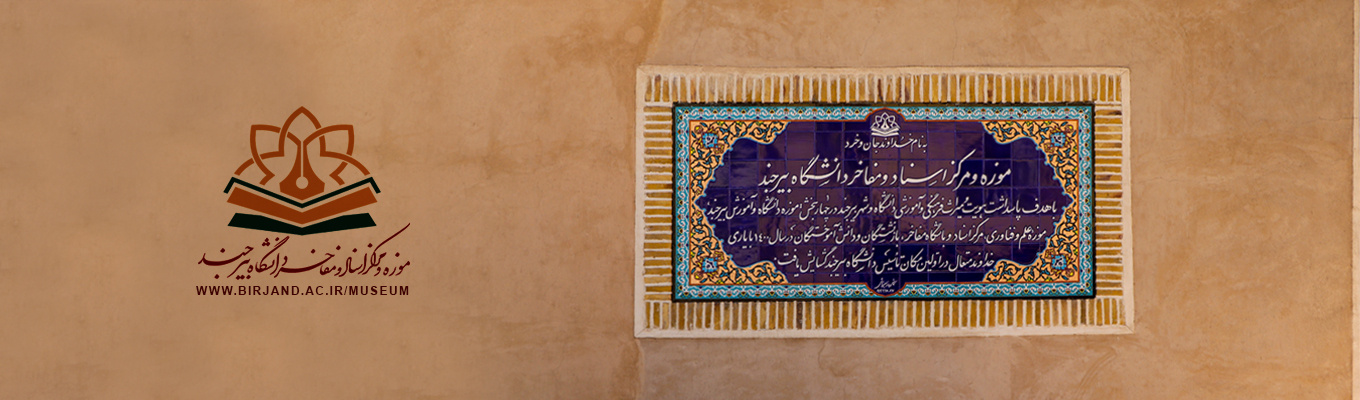 موزه و مرکز اسناد و مفاخر دانشگاه بیرجند
WWW.BIRJAND.AC.IR/MUSEUM
به نام خداوند جان و خرد
موزه و مرکز اسناد و مفاخر دانشگاه بیرجند
با هدف پاسداشت هویت و میراث فرهنگی و آموزشی دانشگاه و شهر بیرجند در چهار بخش؛ موزه دانشگاه و آموزش بیرجند
موزه علم و فناوری، مرکز اسناد و باشگاه مفاخر، بازنشستگان و دانش آموختگان در سال ۱۴۰۰ با یاری
خداوند متعال در اولین مکان تأسیس دانشگاه بیرجند گشایش یافت.